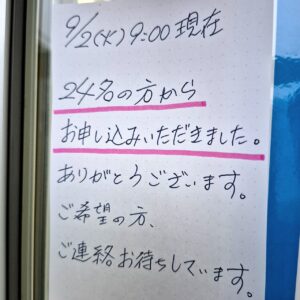 9/2(火)9:00現在
24名の方から
お申し込みいただきました。
ありがとうございます。
ご希望の方、
ご連絡お待ちしています。